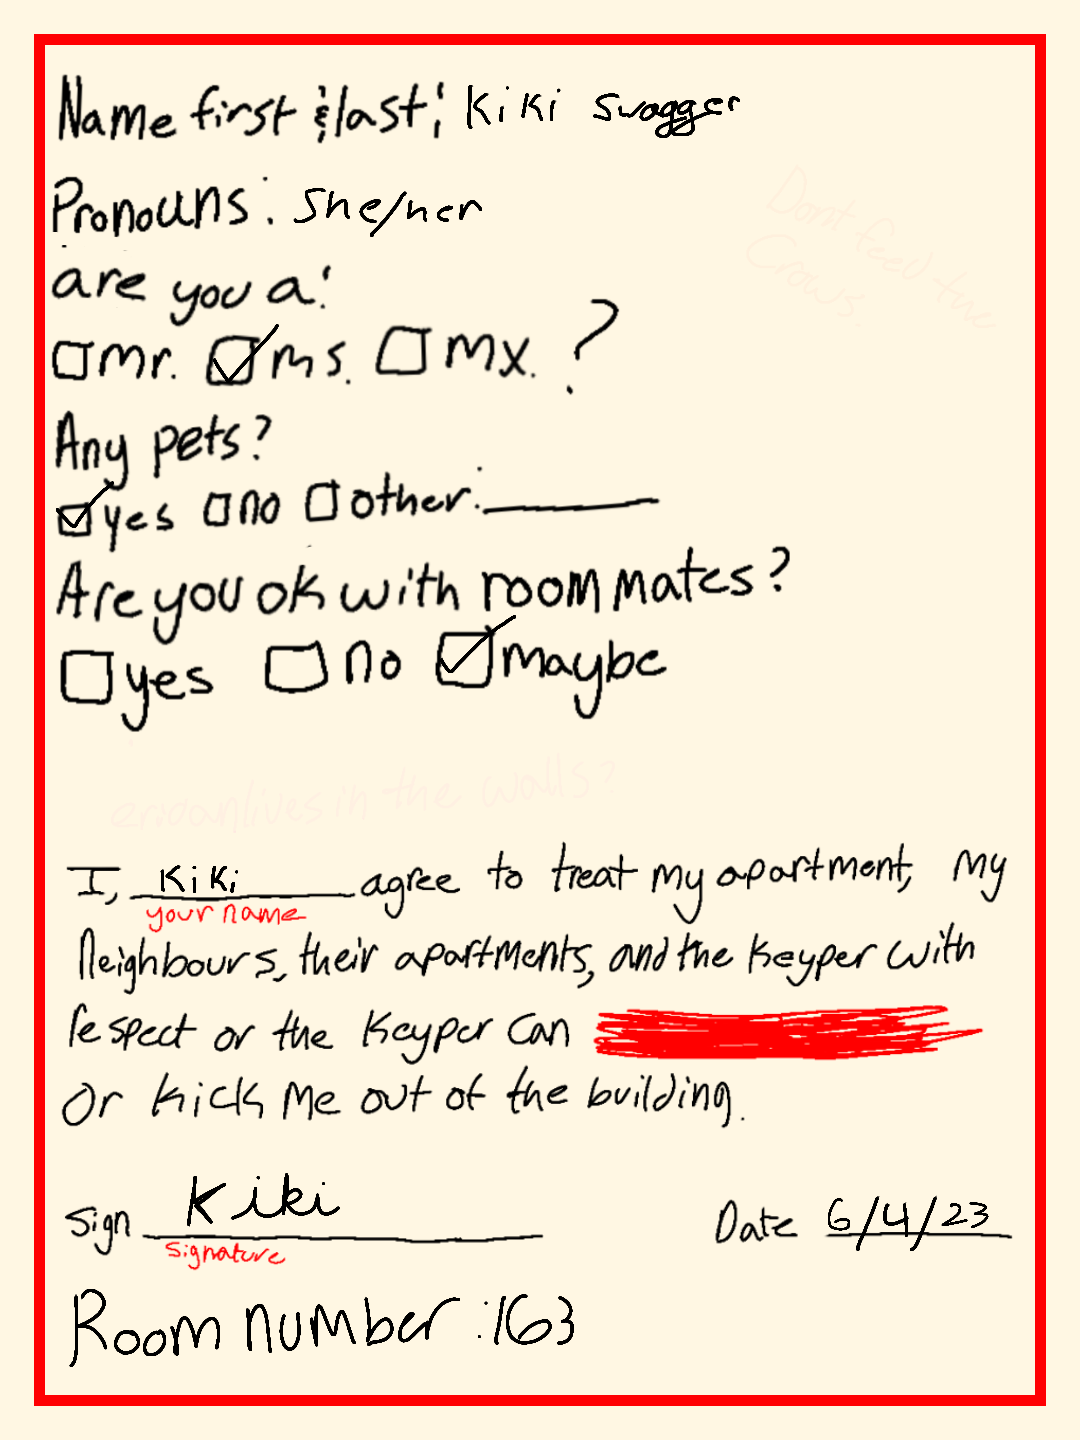 Name first & last: Kiki Swagger
Pronouns: She/her
Dont feed the
Crows.
are you a:
mr. ms. mx. ?
Any pets?
yes no other:
Are you ok with roommates?
yes no maybe
lives in the walls?
I, Kiki agree to treat my apartment, my
your name
Neighbours, their apartments, and the Keyper with
respect or the Keyper Can
Or Kick Me out of the building.
Sign Kiki Date 6/4/23
signature
Room number: 163